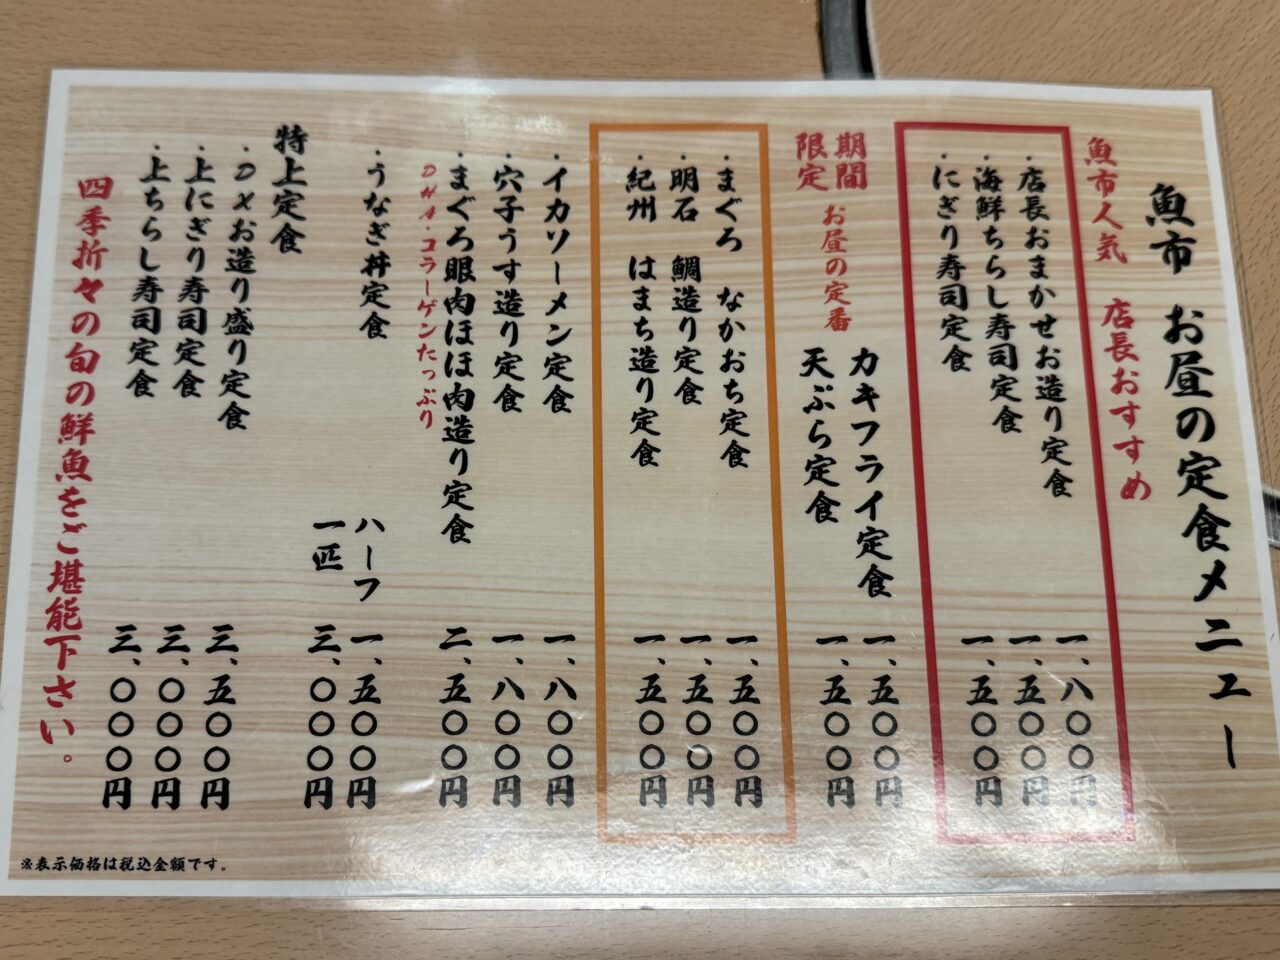 魚市 お昼の定食メニュー
魚市人気 店長おすすめ
・店長おまかせお造り定食 一、八〇〇円
・海鮮ちらし寿司定食 一、五〇〇円
・にぎり寿司定食 一、五〇〇円
期間限定 お昼の定番
カキフライ定食 一、五〇〇円
天ぷら定食 一、五〇〇円
・まぐろ なかおち定食 一、五〇〇円
・明石 鯛造り定食 一、五〇〇円
・紀州 はまち造り定食 一、五〇〇円
・イカソーメン定食 一、八〇〇円
・穴子うす造り定食 一、八〇〇円
・まぐろ眼肉ほほ肉造り定食 二、五〇〇円
DHA・コラーゲンたっぷり
・うなぎ丼定食 ハーフ 一、五〇〇円
一匹 三、〇〇〇円
特上定食
・DXお造り盛り定食 三、五〇〇円
・上にぎり寿司定食 三、〇〇〇円
・上ちらし寿司定食 三、〇〇〇円
四季折々の旬の鮮魚をご堪能下さい。
※表示価格は税込金額です。